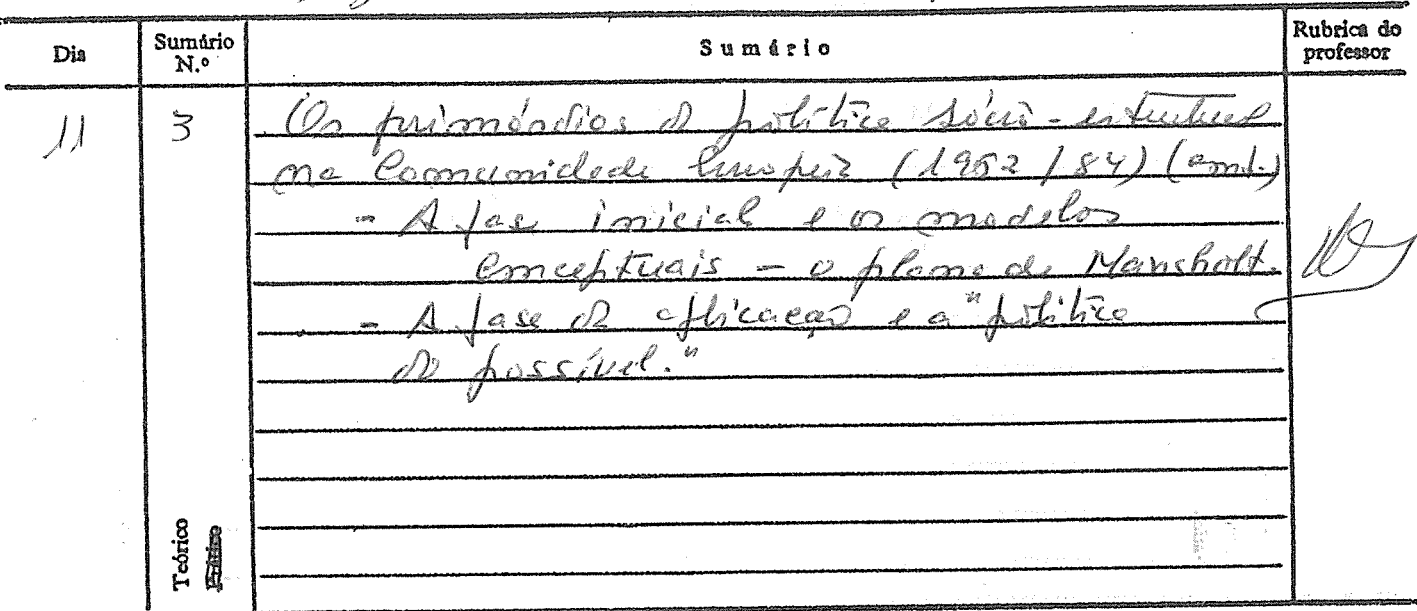 Dia
Sumário N.º
Sumário
Rubrica do professor
11
3
Os primórdios da política sócio-estrutural
na Comunidade Europeia (1962/84) (cont.)
- A fase inicial e os modelos
conceptuais - o plano de Mansholt.
- A fase da aplicação e a "política
do possível."
Teórico
Prático